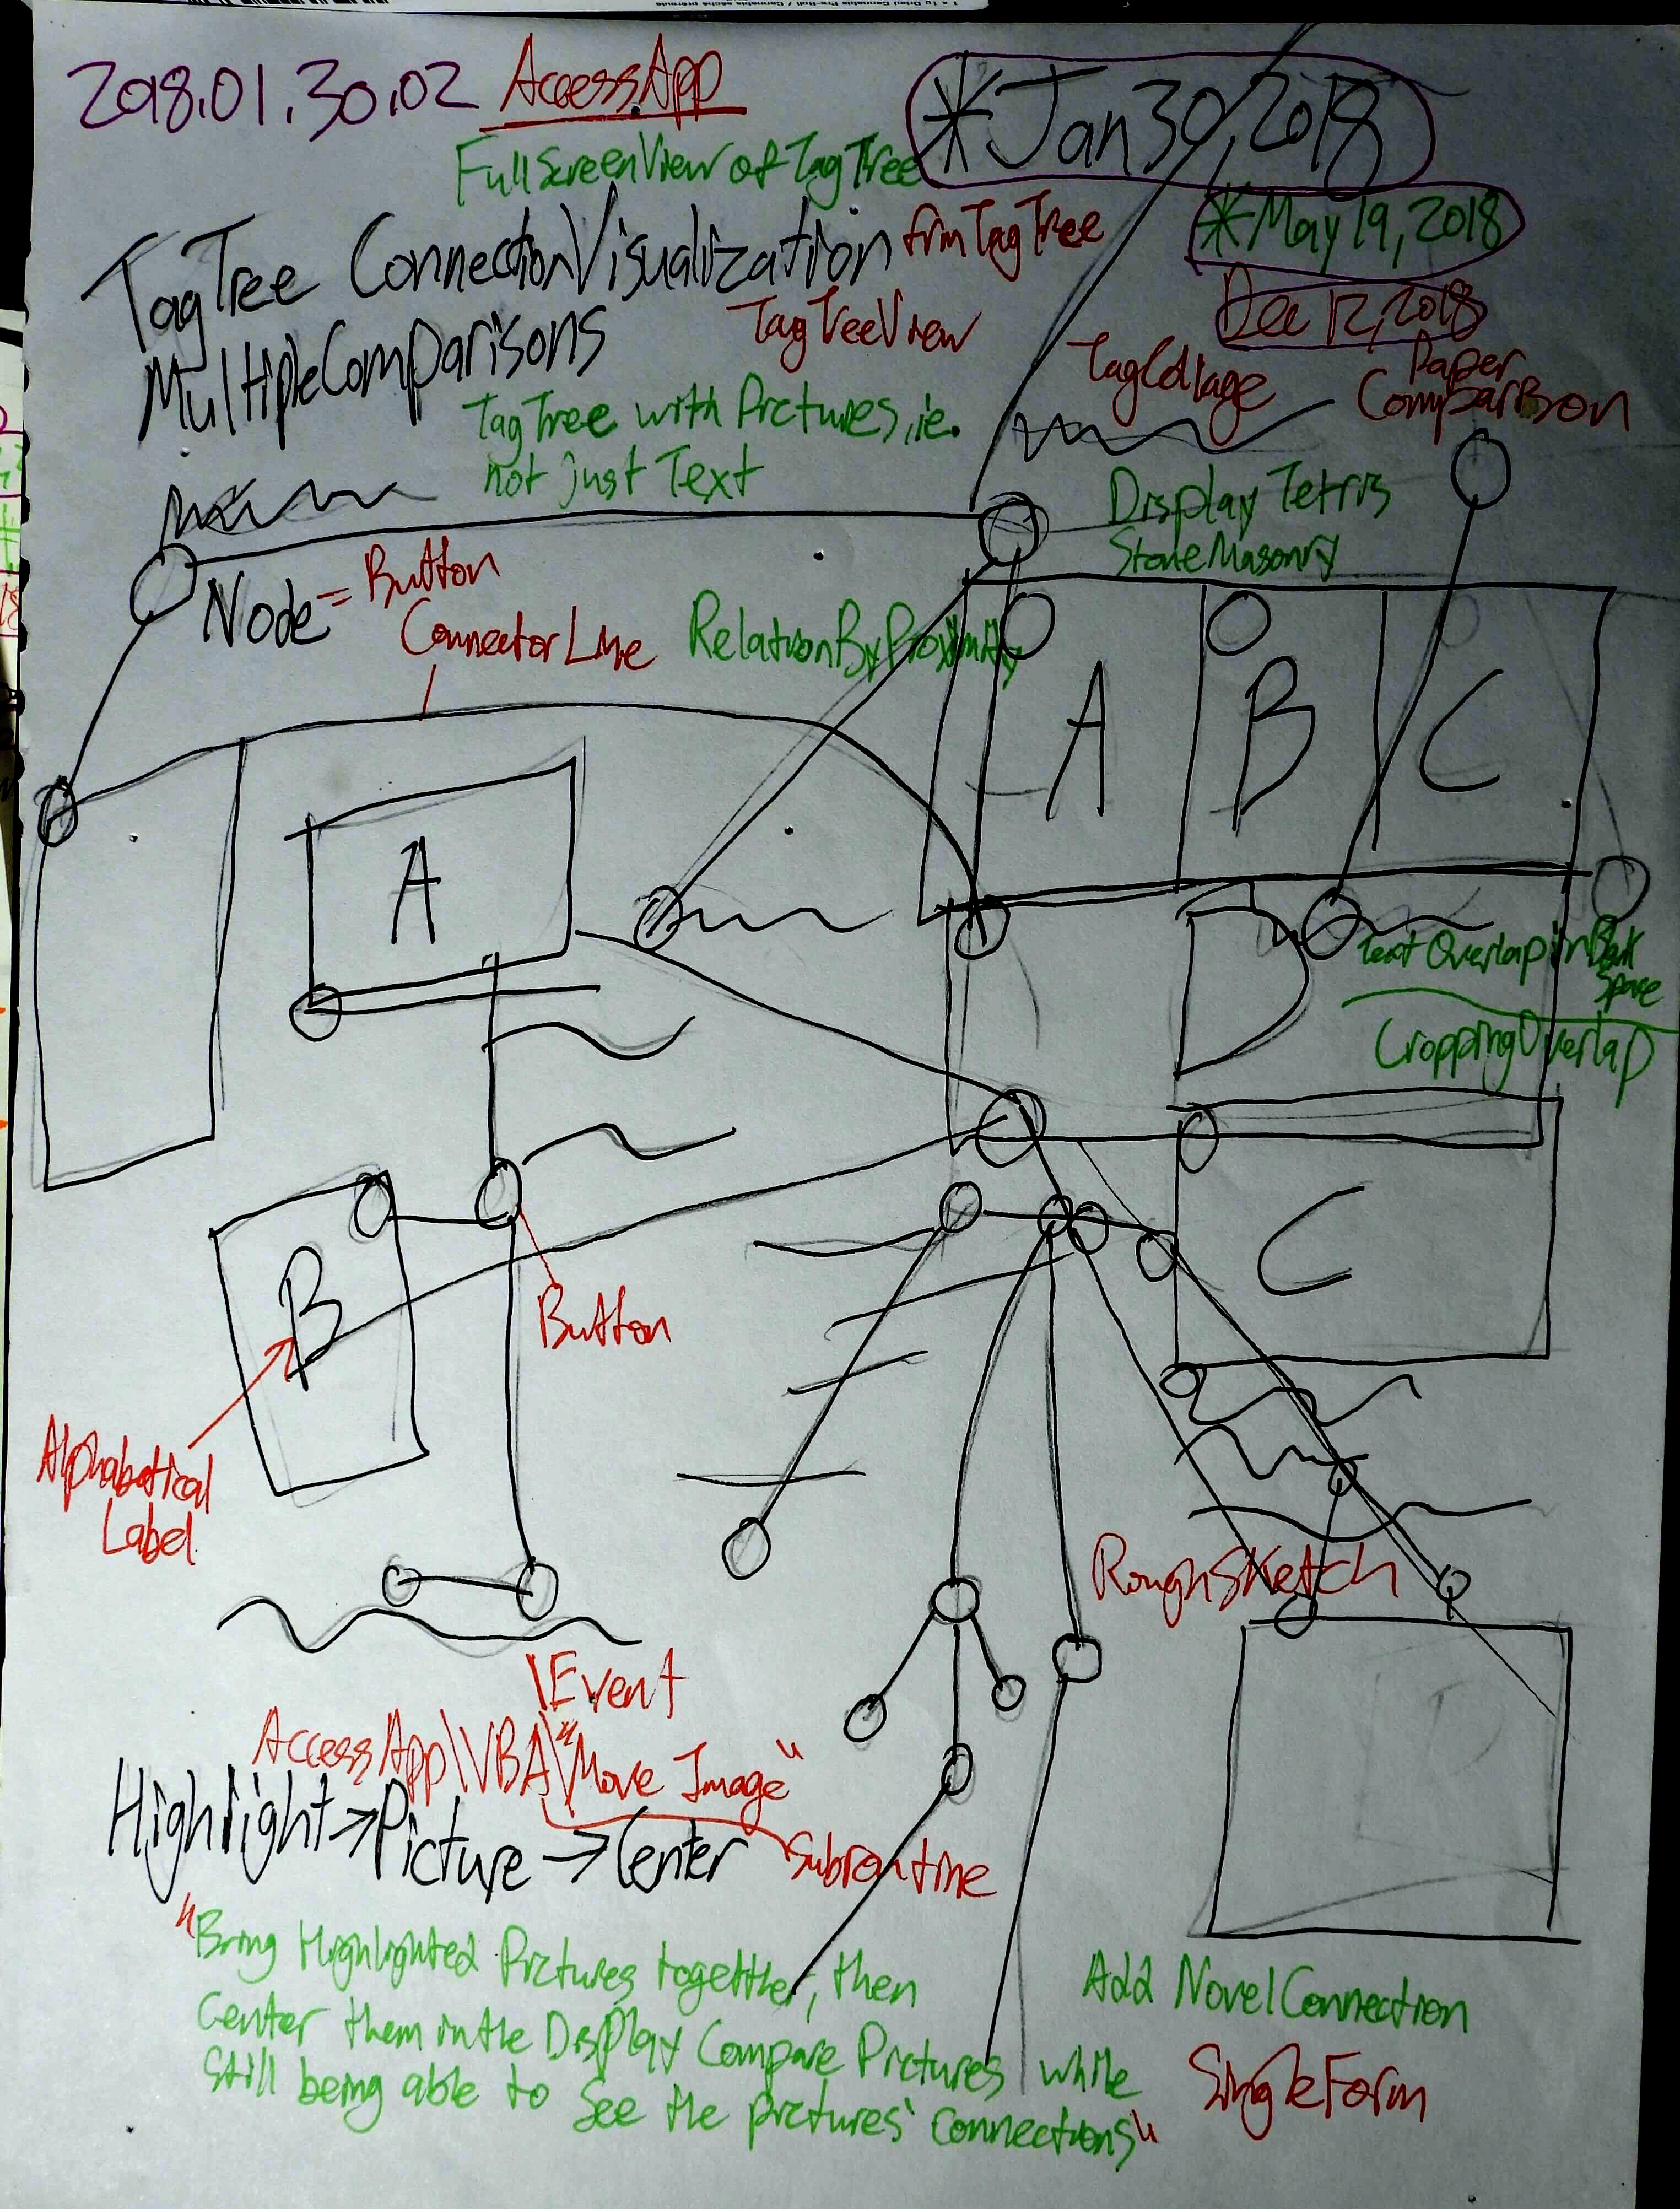 2018.01.30.02 AccessApp
*Jan 30, 2018
FullScreenView of TagTree
*May 19, 2018
TagTree ConnectionVisualization
frmTagTree
Dec 12, 2018
MultipleComparisons
TagTreeView
TagCollage
Paper
Comparison
TagTree with Pictures, ie.
not just Text
Display Tetris
StoneMasonry
Node = Button
ConnectorLine
RelationByProximity
A
B
C
A
D
TextOverlap in Blank
Space
CroppingOverlap
B
C
Button
Alphabetical
Label
RoughSketch
D
\Event
AccessApp\VBA\"Move Image"
Highlight → Picture → Center
Subroutine
"Bring Highlighted Pictures together, then
Center them in the Display Compare Pictures while
still being able to see the pictures' connections"
Add NovelConnection
SingleForm